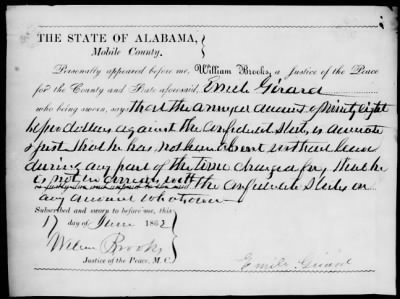 THE STATE OF ALABAMA,
Mobile County.
Personally appeared before me, William Brooks, a Justice of the Peace
for the County and State aforesaid, Emile Girard
who being sworn, says that the annexed account of Ninty Eight
dollars against the Confederate States, is accurate
& just that he has not been absent without leave
during any part of the time charged for, that he
is not in arrears with the Confederate States on
any account whatever
Subscribed and sworn to before me, this
17 day of June 1862
William Brooks
Justice of the Peace, M. C.
Emile Girard